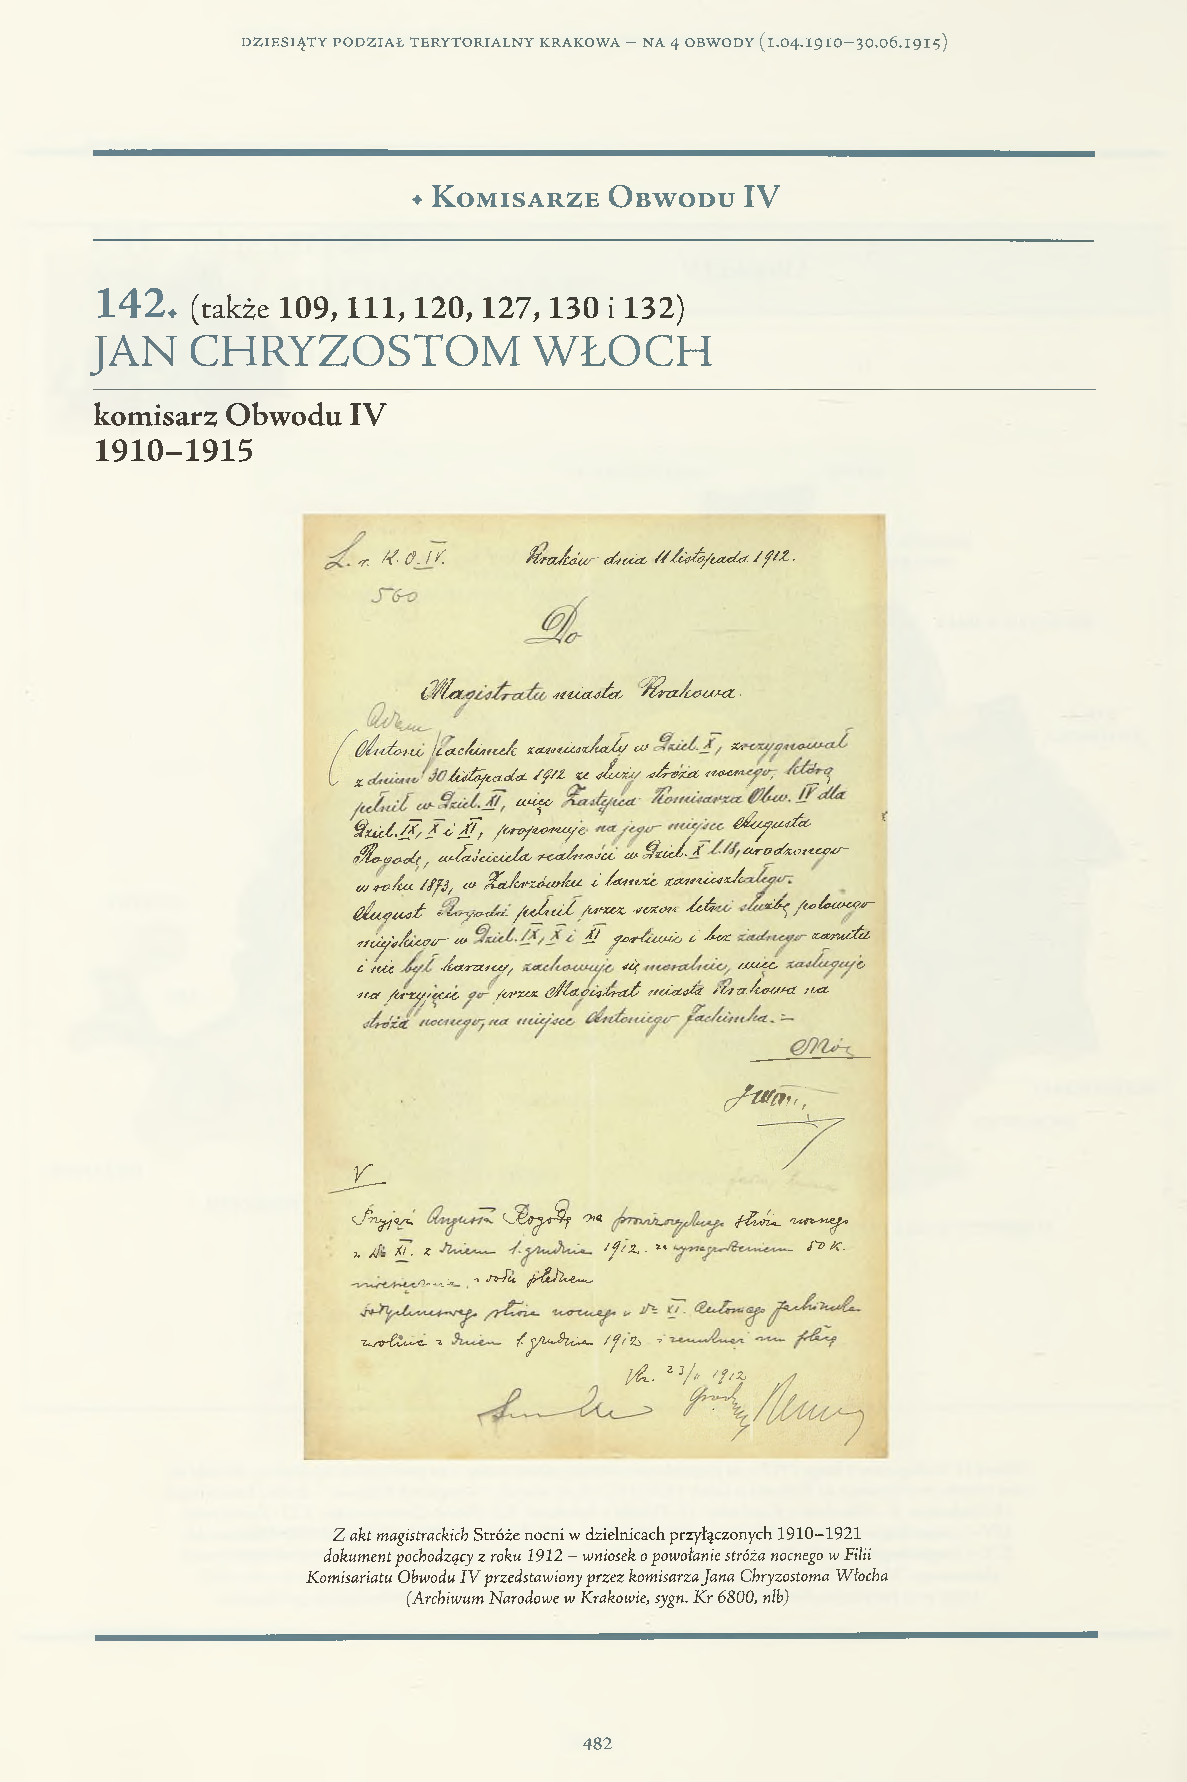 DZIESIĄTY PODZIAŁ TERYTORIALNY KRAKOWA – NA 4 OBWODY (1.04.1910–30.06.1915)
✦ KOMISARZE OBWODU IV
142. (także 109, 111, 120, 127, 130 i 132)
JAN CHRYZOSTOM WŁOCH
komisarz Obwodu IV
1910–1915
L. r. K. O. IV. Kraków dnia 11 listopada 1912.
560
Do
Magistratu miasta Krakowa.
Adam
(Antoni) Jachimek zamieszkały w Dziel. X, zrezygnował
z dniem 30 listopada 1912 ze służy stróża nocnego, którą
pełnił w Dziel. XI, więc Zastępca Komisarza Obw. IV dla
Dziel. IX, X i XI, proponuje na jego miejsce Augusta
Rogodę, właściciela realności w Dziel. X l. 18, urodzonego
w roku 1873, w Zakrzówku i tamże zamieszkałego.
August Rogoda pełnił przez sezon letni służbę polowego
miejskiego w Dziel. IX, X i XI gorliwie i bez żadnego zarzutu
i nie był karany, zachowuje się moralnie, więc zasługuje
na przyjęcie go przez Magistrat miasta Krakowa na
stróża nocnego, na miejsce Antoniego Jachimka. –
V
Przyjąć Augusta Rogodę na prowizorycznego stróża nocnego
w Dz. XI. z dniem 1. grudnia 1912. za wynagrodzeniem 50 K.
miesięcznie z dołu płatnem
Dotychczasowego stróża nocnego w Dz. XI. Antoniego Jachimka
zwolnić z dniem 1. grudnia 1912 i mu płacę
Kr. 23/11 1912
Z akt magistrackich Stróże nocni w dzielnicach przyłączonych 1910–1921
dokument pochodzący z roku 1912 – wniosek o powołanie stróża nocnego w Filii
Komisariatu Obwodu IV przedstawiony przez komisarza Jana Chryzostoma Włocha
(Archiwum Narodowe w Krakowie, sygn. Kr 6800, nlb)
482